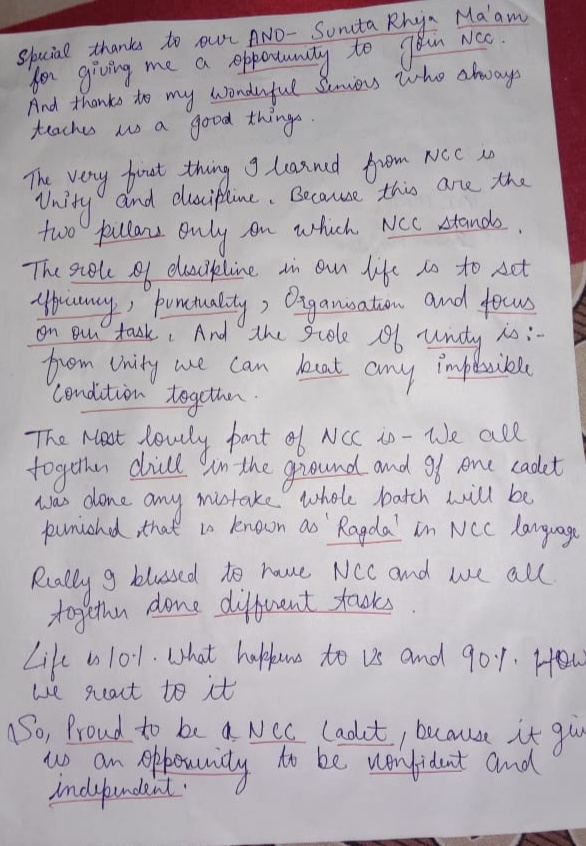 Special thanks to our ANO- Sunita Rheja Ma'am
for giving me a opportunity to Join NCC.
And thanks to my wonderful Seniors who always
teaches us a good things.
The very first thing I learned from NCC is
Unity and discipline. Because this are the
two pillars only on which NCC stands.
The role of discipline in our life is to set
efficiency, punctuality, Organisation and focus
on our task. And the role of unity is:-
from Unity we can beat any impossible
Condition together.
The Most lovely part of NCC is- We all
together drill in the ground and If one cadet
was done any mistake whole batch will be
punished, that is known as 'Ragda' in NCC language
Really I blessed to have NCC and we all
together done different tasks.
Life is 10%. What happens to us and 90%. How
we react to it
So, Proud to be a NCC Cadet, because it giv
us an opportunity to be confident and
independent.